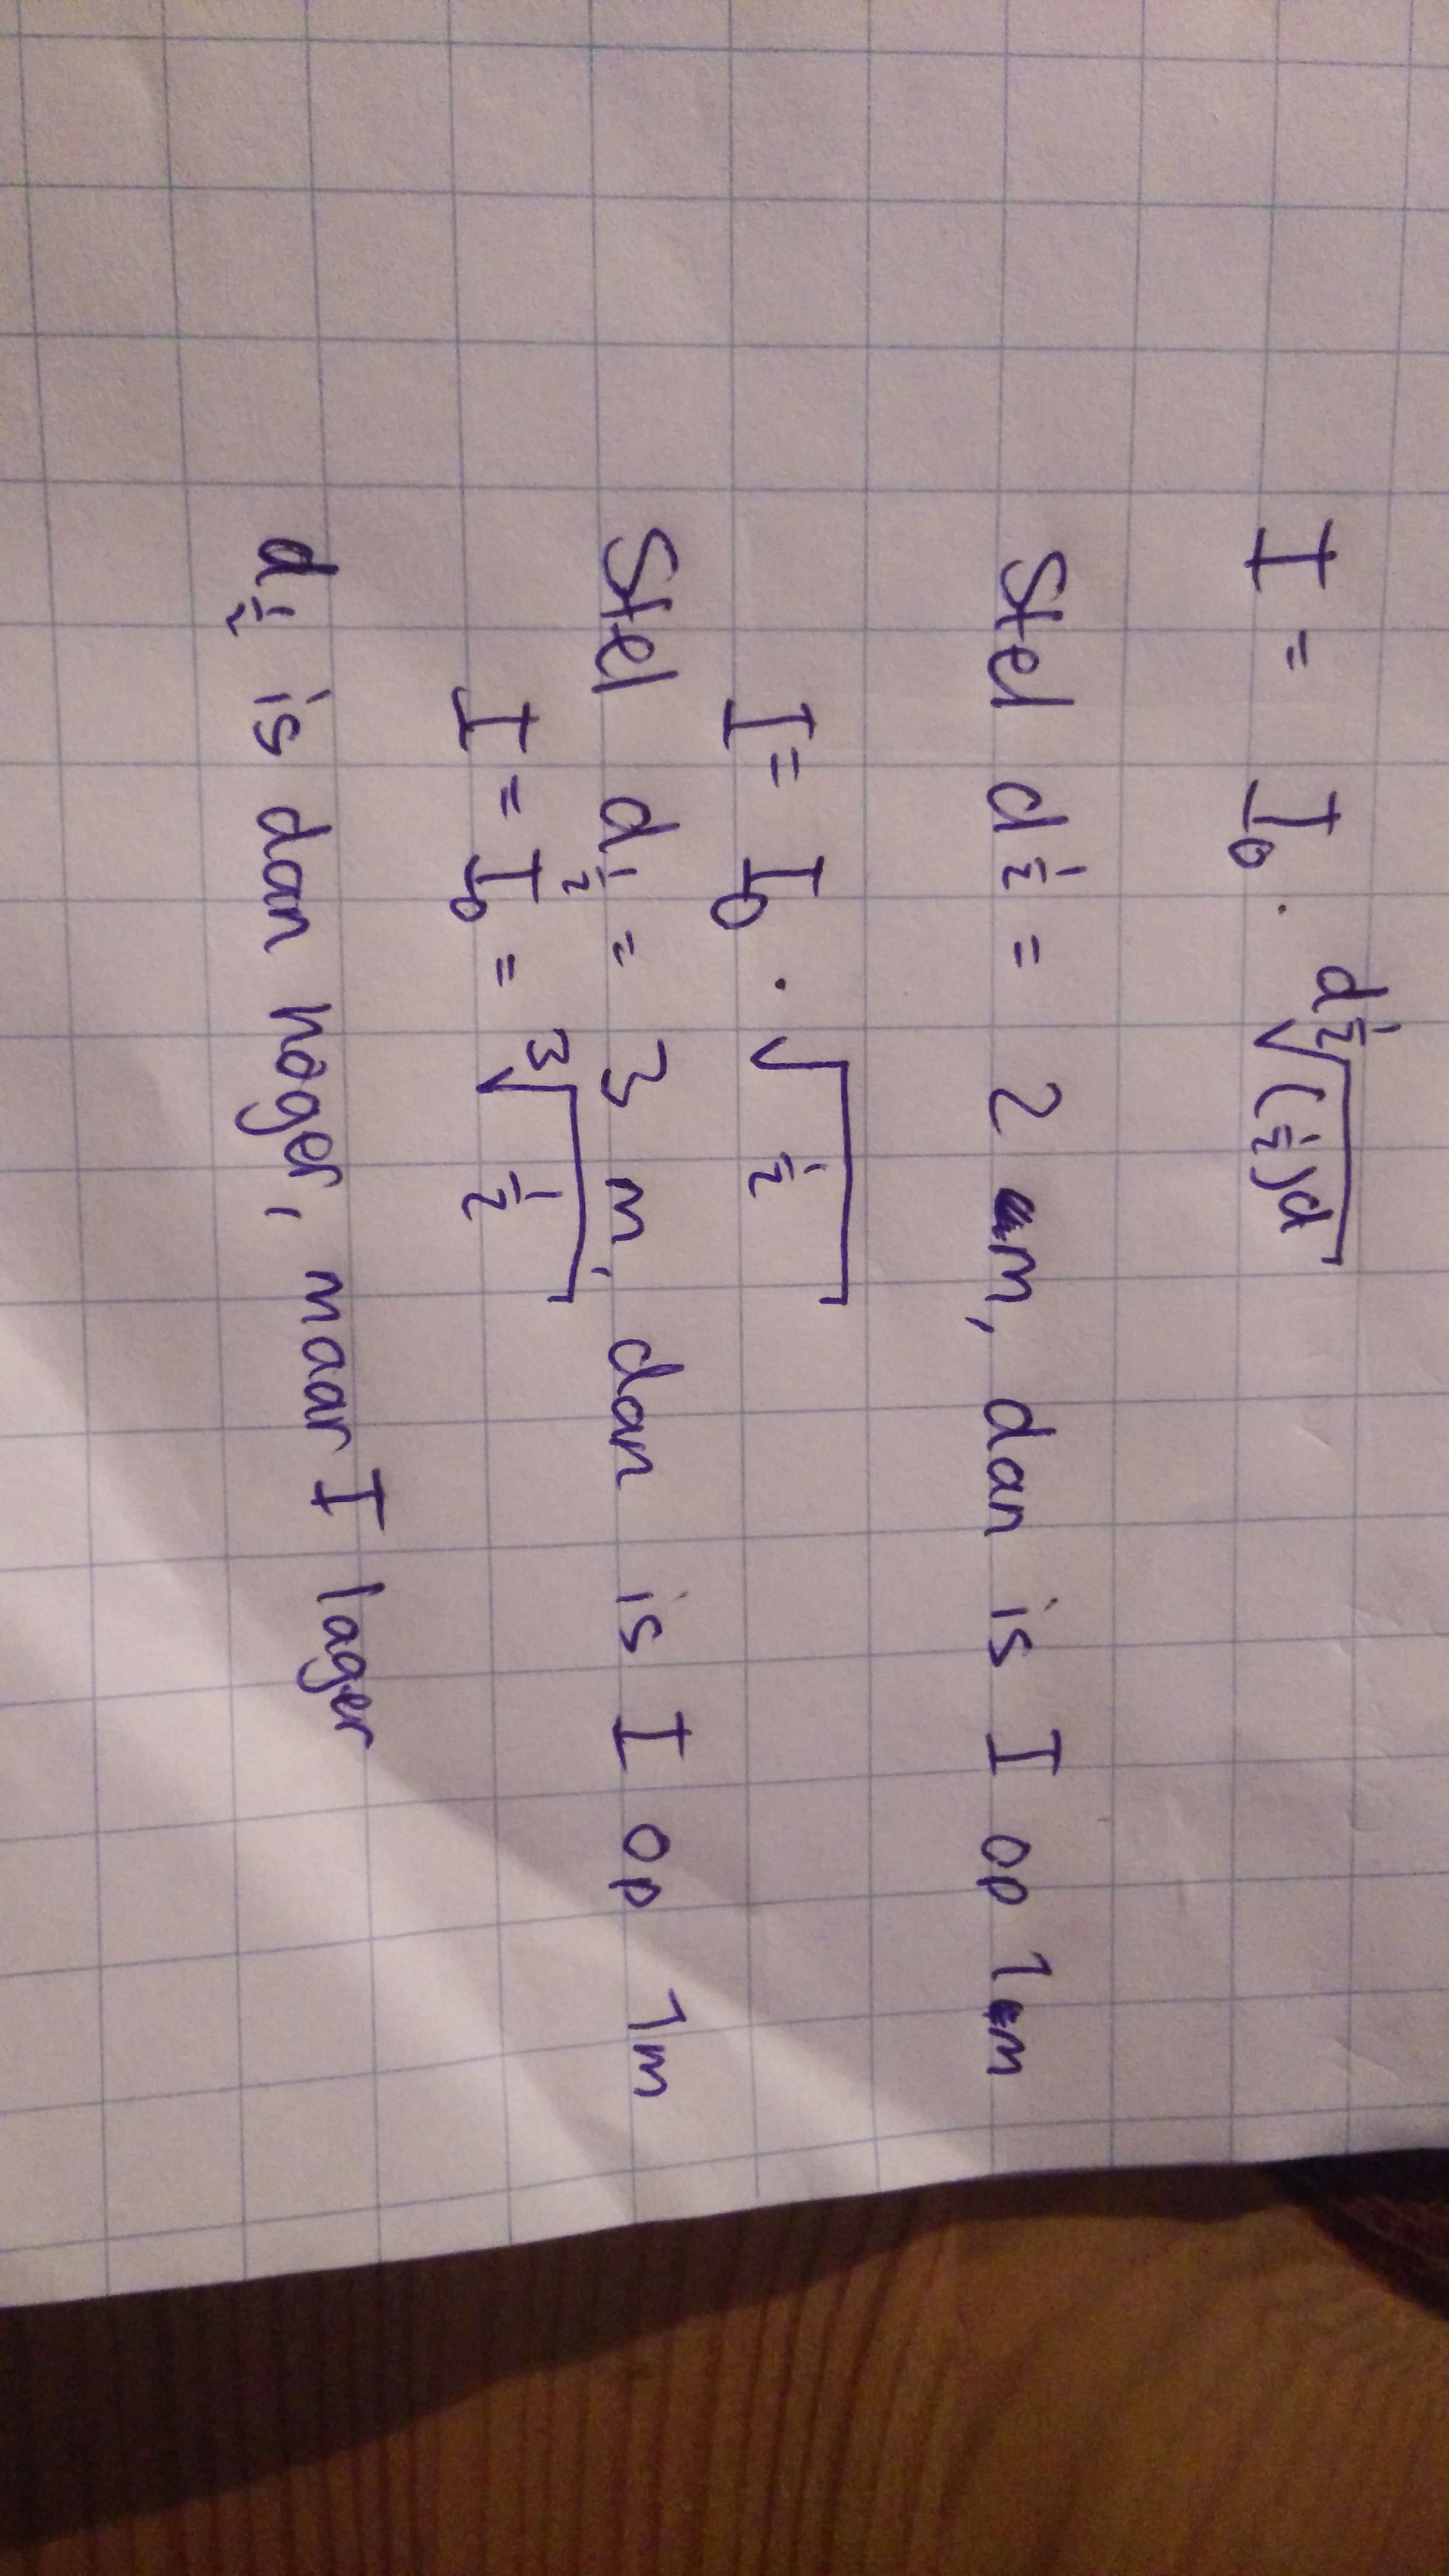 I = I₀ · d½√(½)d
Stel d½ = 2 m, dan is I op 1 m
I = I₀ · √½
Stel d½ = 3 m, dan is I op 1m
I = I₀ = ³√½
d½ is dan hoger, maar I lager